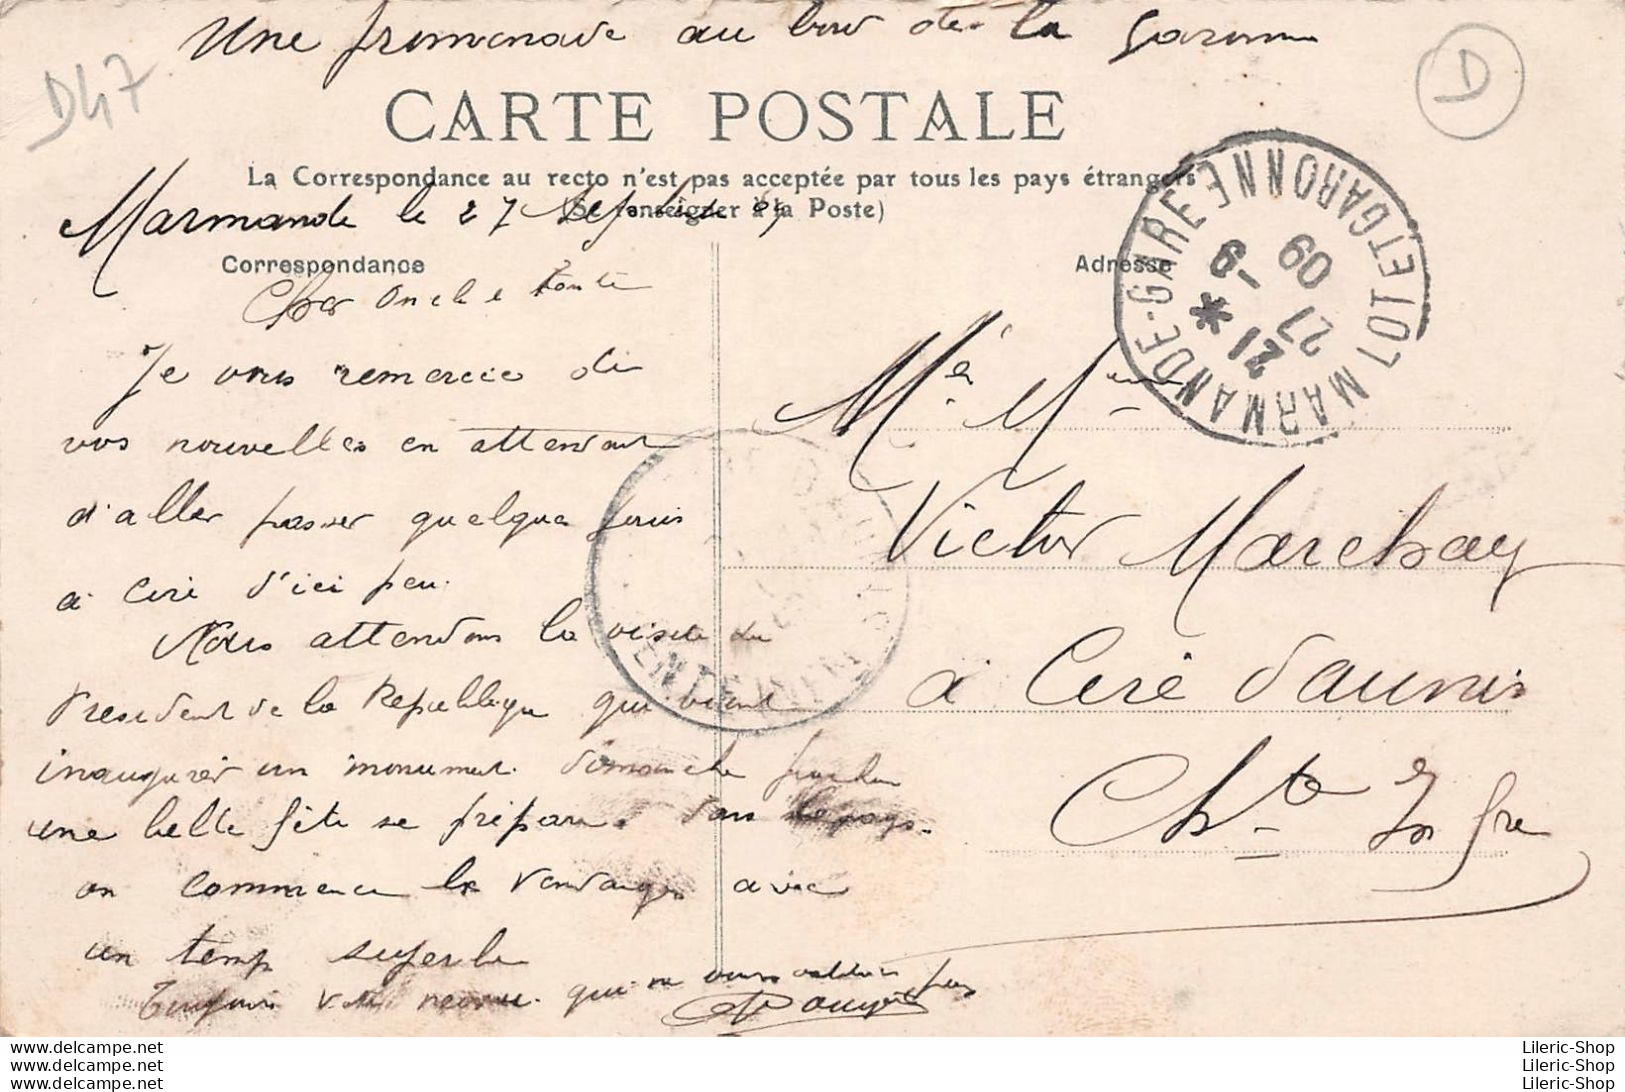 Une promenade au bord de la Garonne
D47
D
CARTE POSTALE
La Correspondance au recto n'est pas acceptée par tous les pays étrangers
(Se renseigner à la Poste)
Marmande le 27 Septembre 09
Correspondance
Adresse
MARMANDE-GARE LOT ET GARONNE
21 * 27 -9 09
Cher Oncle & Tante
Je vous remercie de
vos nouvelles en attendant
d'aller passer quelque jours
a Ciré d'ici peu.
Nous attendons la visite du
President de la Republique qui vient
inaugurer un monument dimanche
une belle fête se prépare dans le pays.
on commence les vendanges avec
un temp superbe
Toujours votre neveu qui ne vous oublie pas
Mr & Mme
Victor Marchay
à Ciré d'aunis
Chte Infre
www.delcampe.net
www.delcampe.net
www.delcampe.net
Lileric-Shop
Lileric-Shop
Lileric-Shop